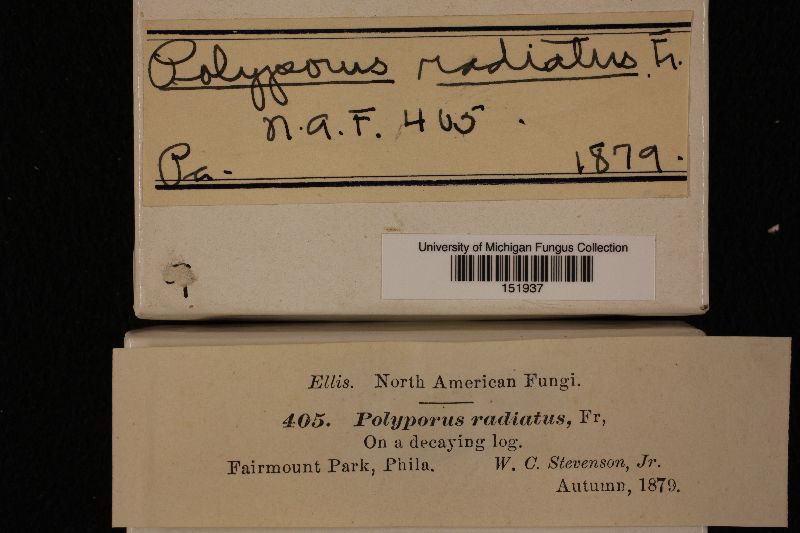 Polyporus radiatus Fr.
N.A.F. 405.
Pa. 1879.
University of Michigan Fungus Collection
151937
Ellis. North American Fungi.
405. Polyporus radiatus, Fr,
On a decaying log.
Fairmount Park, Phila. W. C. Stevenson, Jr.
Autumn, 1879.